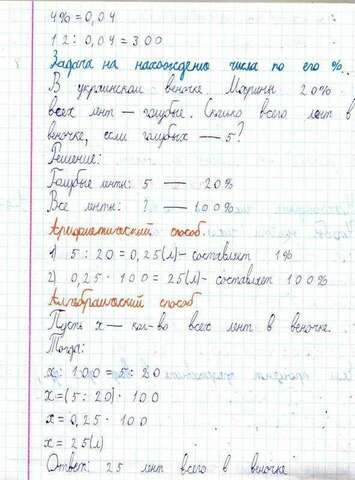 4% = 0,04
12 : 0,04 = 300
Задача на нахождение числа по его %.
В украинском веночке Марины 20%
всех лент — голубые. Сколько всего лент в
веночке, если голубых — 5?
Решение:
Голубые ленты: 5 — 20%
Все ленты: ? — 100%
Арифметический способ.
1) 5 : 20 = 0,25(л) - составляет 1%
2) 0,25 · 100 = 25(л) - составляет 100%
Алгебраический способ
Пусть х — кол-во всех лент в веночке.
Тогда:
х : 100 = 5 : 20
х = (5 : 20) · 100
х = 0,25 · 100
х = 25(л)
Ответ: 25 лент всего в веночке.